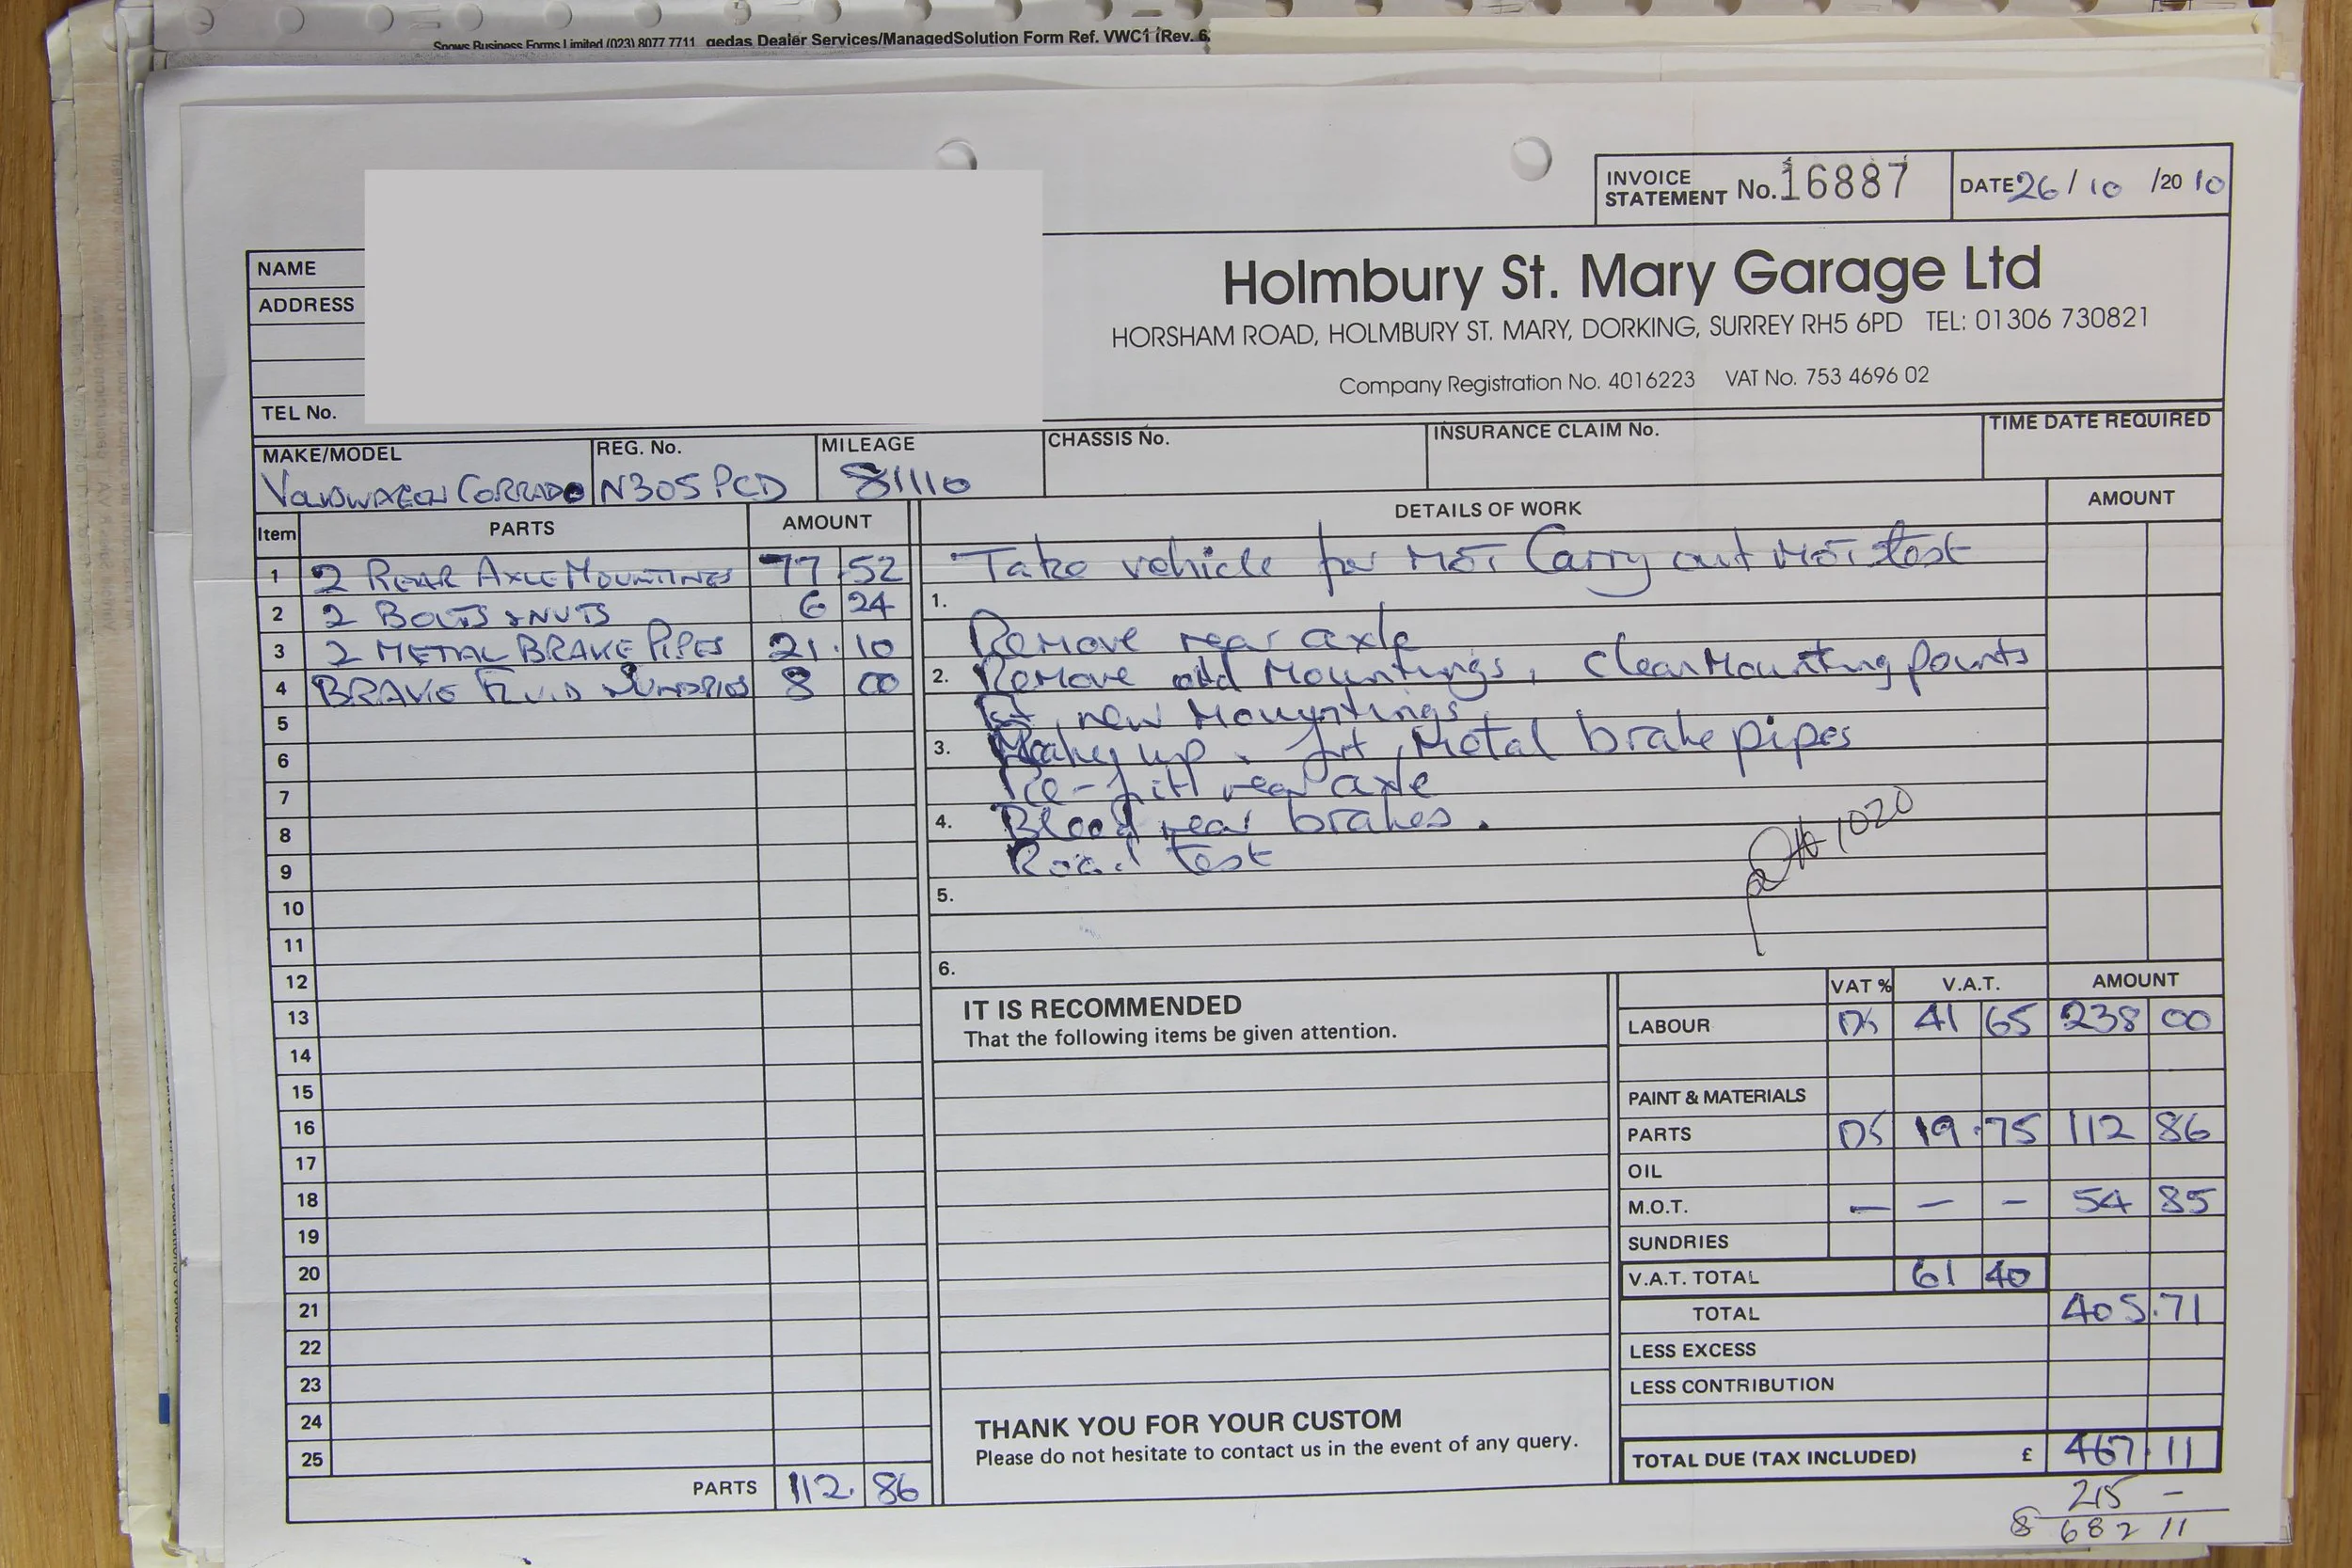 Snows Business Forms Limited (023) 8077 7711 gedas Dealer Services/ManagedSolution Form Ref. VWC1 (Rev. 6
INVOICE STATEMENT No. 16887 DATE 26/10/2010
NAME
ADDRESS
TEL No.
Holmbury St. Mary Garage Ltd
HORSHAM ROAD, HOLMBURY ST. MARY, DORKING, SURREY RH5 6PD TEL: 01306 730821
Company Registration No. 4016223 VAT No. 753 4696 02
MAKE/MODEL REG. No. MILEAGE CHASSIS No. INSURANCE CLAIM No. TIME DATE REQUIRED
VOLKSWAGEN CORRADO N305 PCD 81110
Item PARTS AMOUNT
1 2 REAR AXLE MOUNTINGS 77.52
2 2 BOLTS & NUTS 6 24
3 2 METAL BRAKE PIPES 21.10
4 BRAKE FLUID SUNDRIES 8 00
5
6
7
8
9
10
11
12
13
14
15
16
17
18
19
20
21
22
23
24
25
PARTS 112.86
DETAILS OF WORK AMOUNT
Take vehicle for MOT Carry out MOT test
1.
Remove rear axle
2. Remove old Mountings, clean Mounting points
Fit new Mountings
3. Make up fit Metal brake pipes
Re-fit rear axle
4. Bleed rear brakes.
Road test
1020
5.
6.
IT IS RECOMMENDED
That the following items be given attention.
THANK YOU FOR YOUR CUSTOM
Please do not hesitate to contact us in the event of any query.
VAT % V.A.T. AMOUNT
LABOUR 41 65 238 00
PAINT & MATERIALS
PARTS 19.75 112 86
OIL
M.O.T. — — – 54 85
SUNDRIES
V.A.T. TOTAL 61 40
TOTAL 405.71
LESS EXCESS
LESS CONTRIBUTION
TOTAL DUE (TAX INCLUDED) £ 467.11
215 –
8 682 11